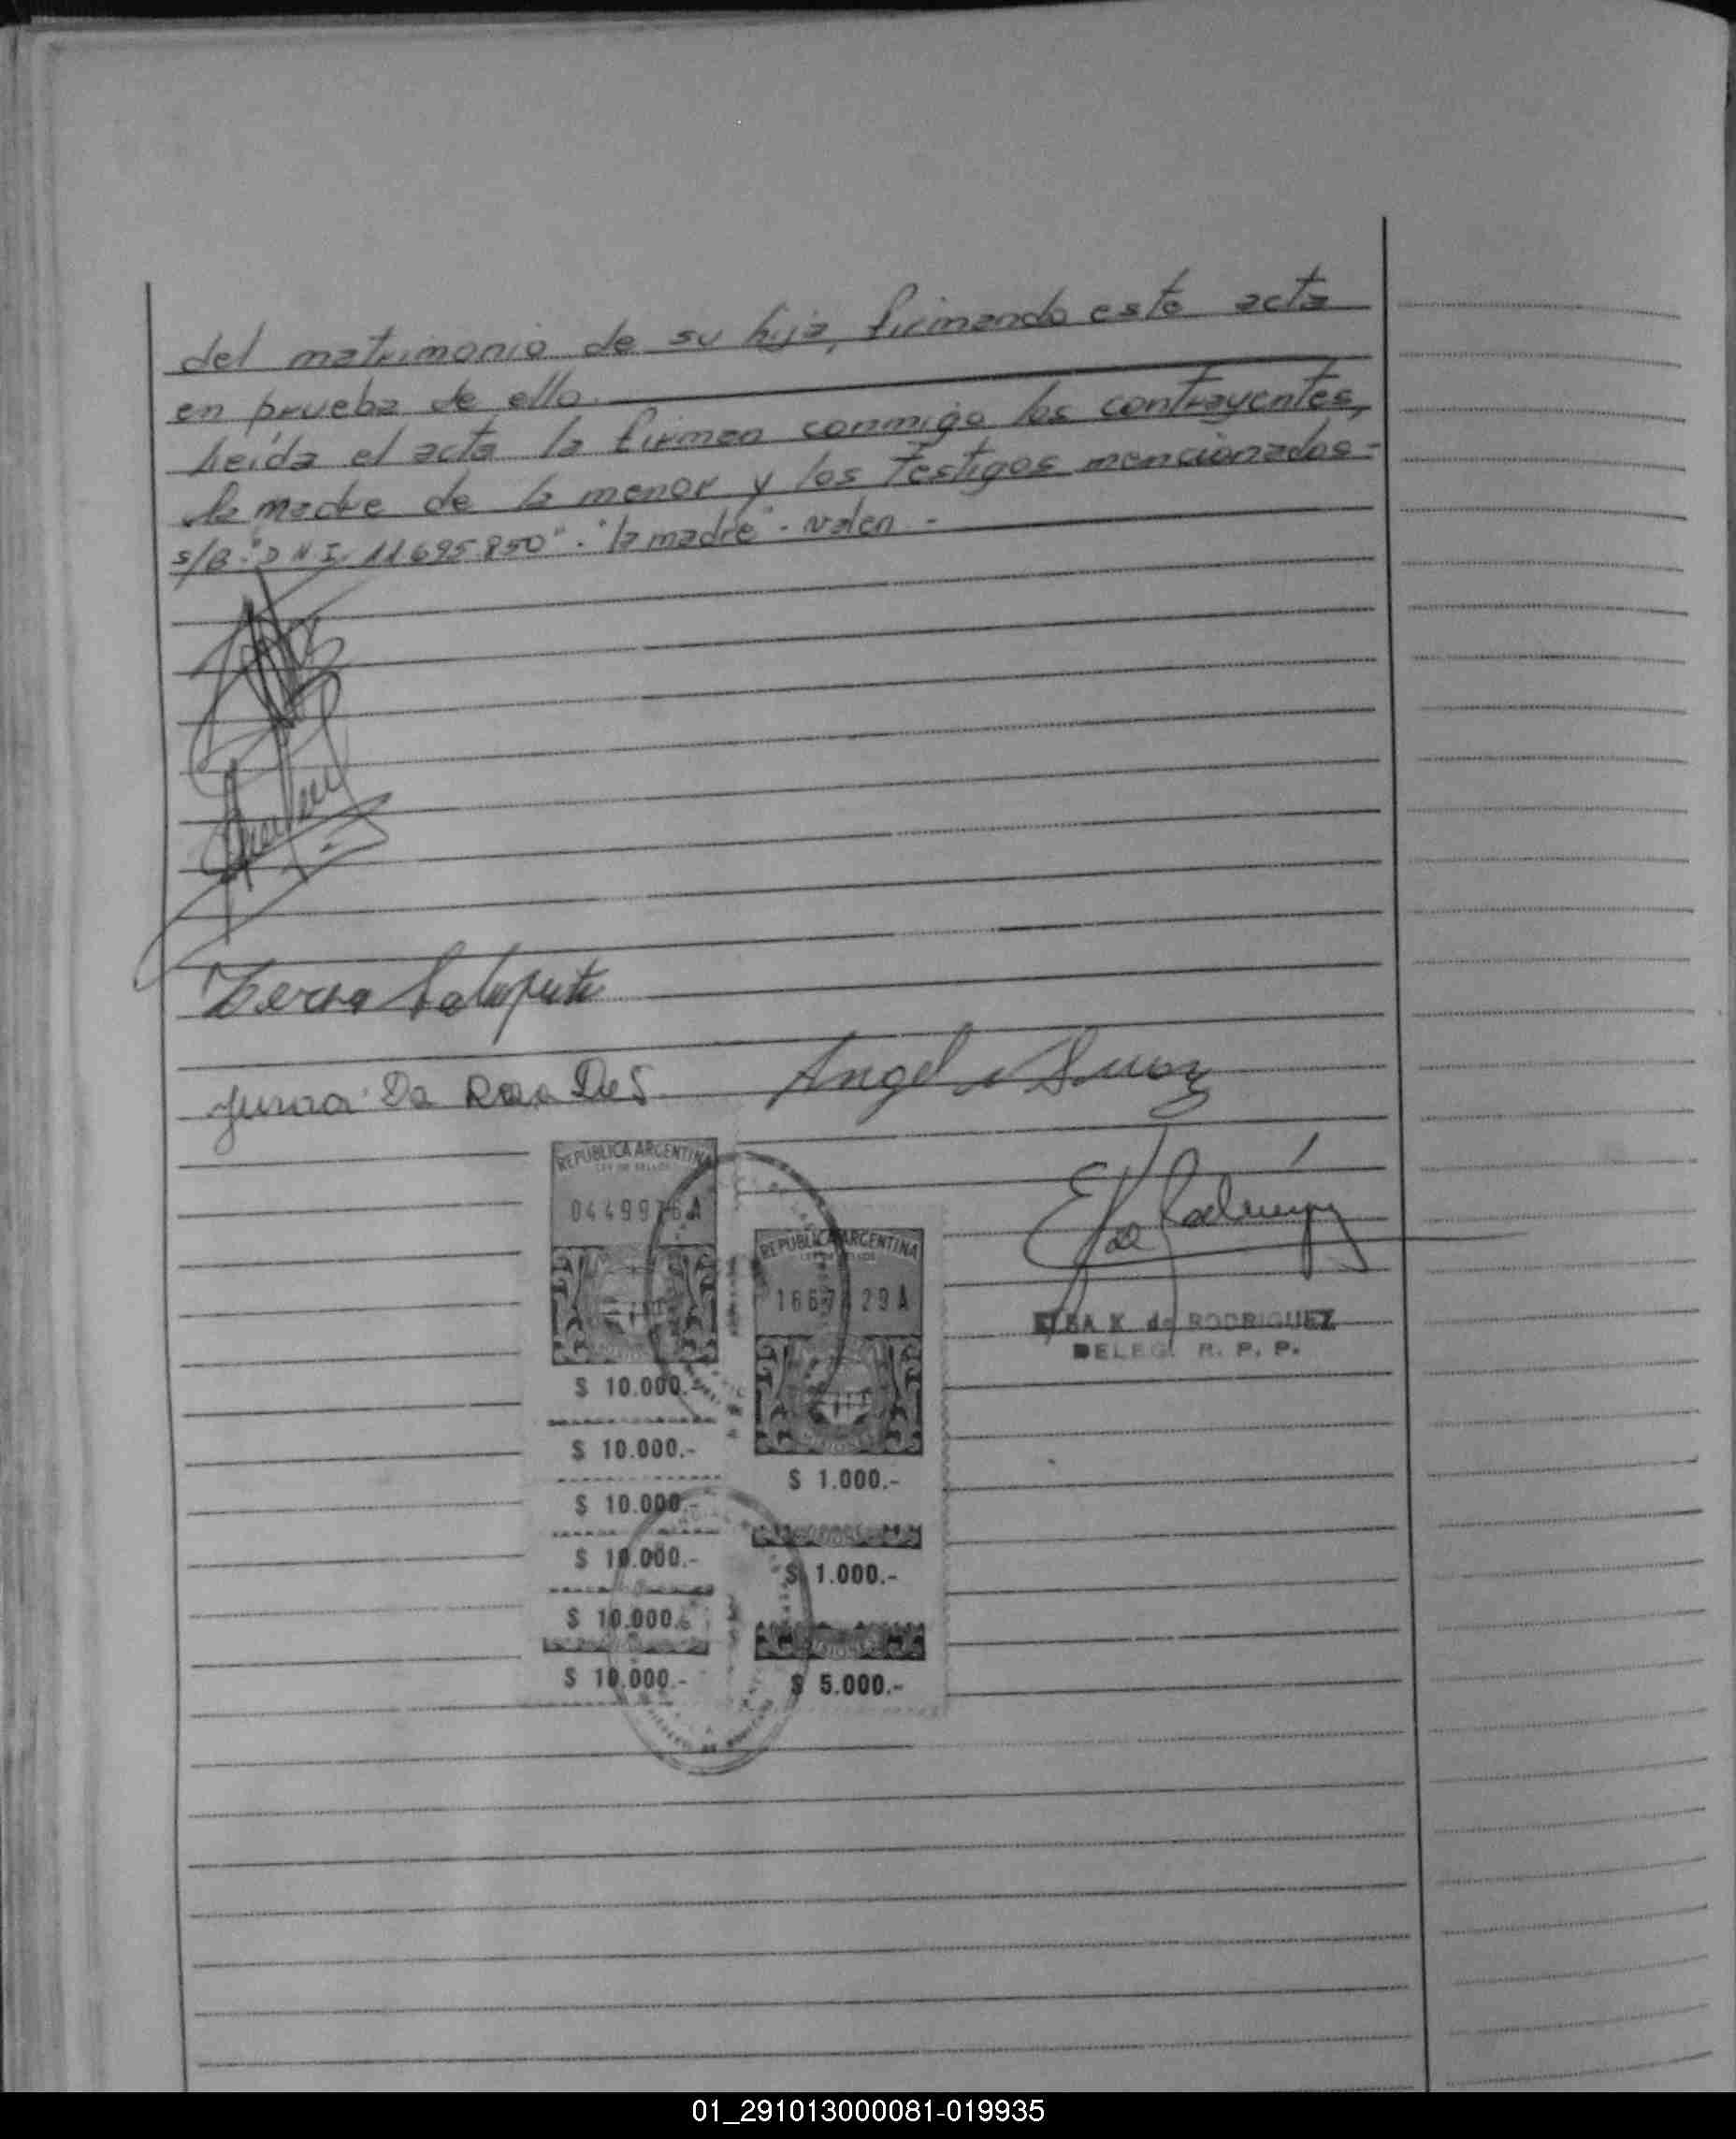 del matrimonio de su hija, firmando este acta
en prueba de ello.
Leída el acta la firman conmigo los contrayentes,
la madre de la menor y los testigos mencionados-
s/B-"D N I. 11.695.850"-"la madre"-valen-
Da Rosa
Angel
REPUBLICA ARGENTINA
LEY DE SELLOS
REPUBLICA ARGENTINA
LEY DE SELLOS
$ 10.000.-
$ 10.000.-
$ 10.000.-
$ 10.000.-
$ 10.000.-
$ 10.000.-
$ 1.000.-
$ 1.000.-
$ 5.000.-
ELBA K de RODRIGUEZ
DELEG. R. P. P.
01_291013000081-019935